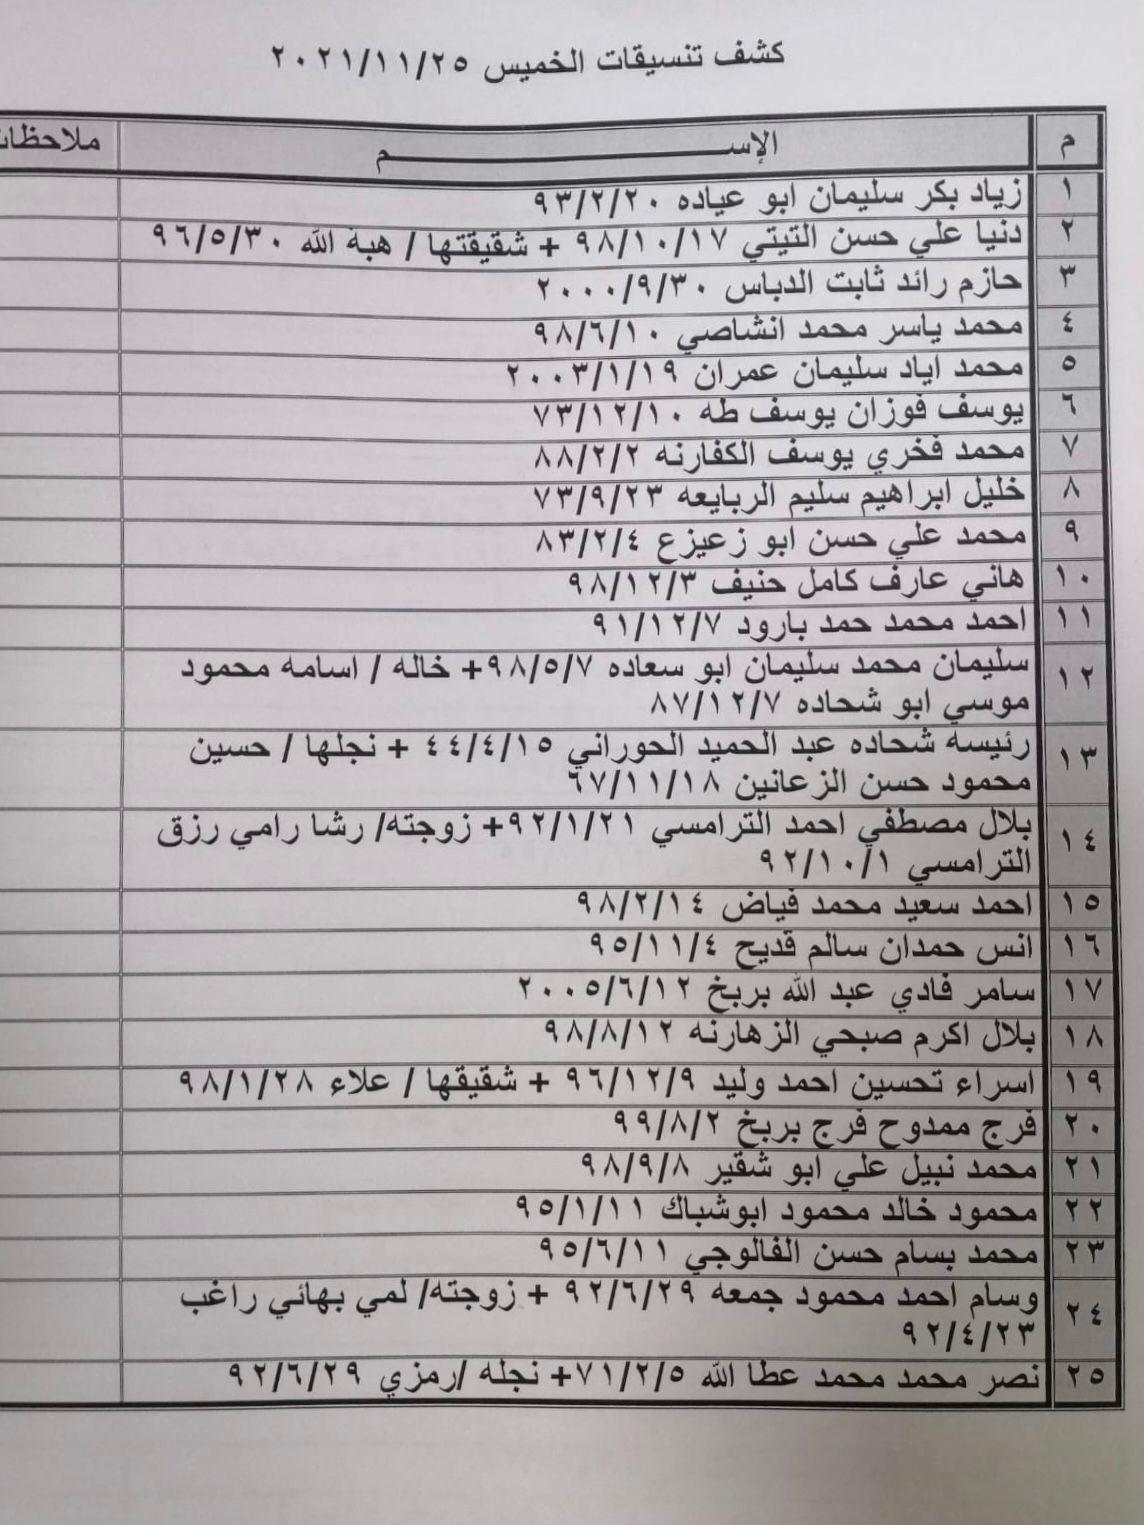 كشف تنسيقات الخميس ٢٠٢١/١١/٢٥
م الإســـــم ملاحظات
١ زياد بكر سليمان ابو عياده ٩٣/٢/٢٠
٢ دنيا علي حسن التيتي ٩٨/١٠/١٧ + شقيقتها / هبة الله ٩٦/٥/٣٠
٣ حازم رائد ثابت الدباس ٢٠٠٠/٩/٣٠
٤ محمد ياسر محمد انشاصي ٩٨/٦/١٠
٥ محمد اياد سليمان عمران ٢٠٠٣/١/١٩
٦ يوسف فوزان يوسف طه ٧٣/١٢/١٠
٧ محمد فخري يوسف الكفارنه ٨٨/٢/٢
٨ خليل ابراهيم سليم الربايعه ٧٣/٩/٢٣
٩ محمد علي حسن ابو زعيزع ٨٣/٢/٤
١٠ هاني عارف كامل حنيف ٩٨/١٢/٣
١١ احمد محمد حمد بارود ٩١/١٢/٧
١٢ سليمان محمد سليمان ابو سعاده ٩٨/٥/٧+ خاله / اسامه محمود
موسي ابو شحاده ٨٧/١٢/٧
١٣ رئيسه شحاده عبد الحميد الحوراني ٤٤/٤/١٥ + نجلها / حسين
محمود حسن الزعانين ٦٧/١١/١٨
١٤ بلال مصطفي احمد الترامسي ٩٢/١/٢١+ زوجته/ رشا رامي رزق
الترامسي ٩٢/١٠/١
١٥ احمد سعيد محمد فياض ٩٨/٢/١٤
١٦ انس حمدان سالم قديح ٩٥/١١/٤
١٧ سامر فادي عبد الله بربخ ٢٠٠٥/٦/١٢
١٨ بلال اكرم صبحي الزهارنه ٩٨/٨/١٢
١٩ اسراء تحسين احمد وليد ٩٦/١٢/٩ + شقيقها / علاء ٩٨/١/٢٨
٢٠ فرج ممدوح فرج بربخ ٩٩/٨/٢
٢١ محمد نبيل علي ابو شقير ٩٨/٩/٨
٢٢ محمود خالد محمود ابوشباك ٩٥/١/١١
٢٣ محمد بسام حسن الفالوجي ٩٥/٦/١١
٢٤ وسام احمد محمود جمعه ٩٢/٦/٢٩ + زوجته/ لمي بهائي راغب
٩٢/٤/٢٣
٢٥ نصر محمد محمد عطا الله ٧١/٢/٥+ نجله /رمزي ٩٢/٦/٢٩